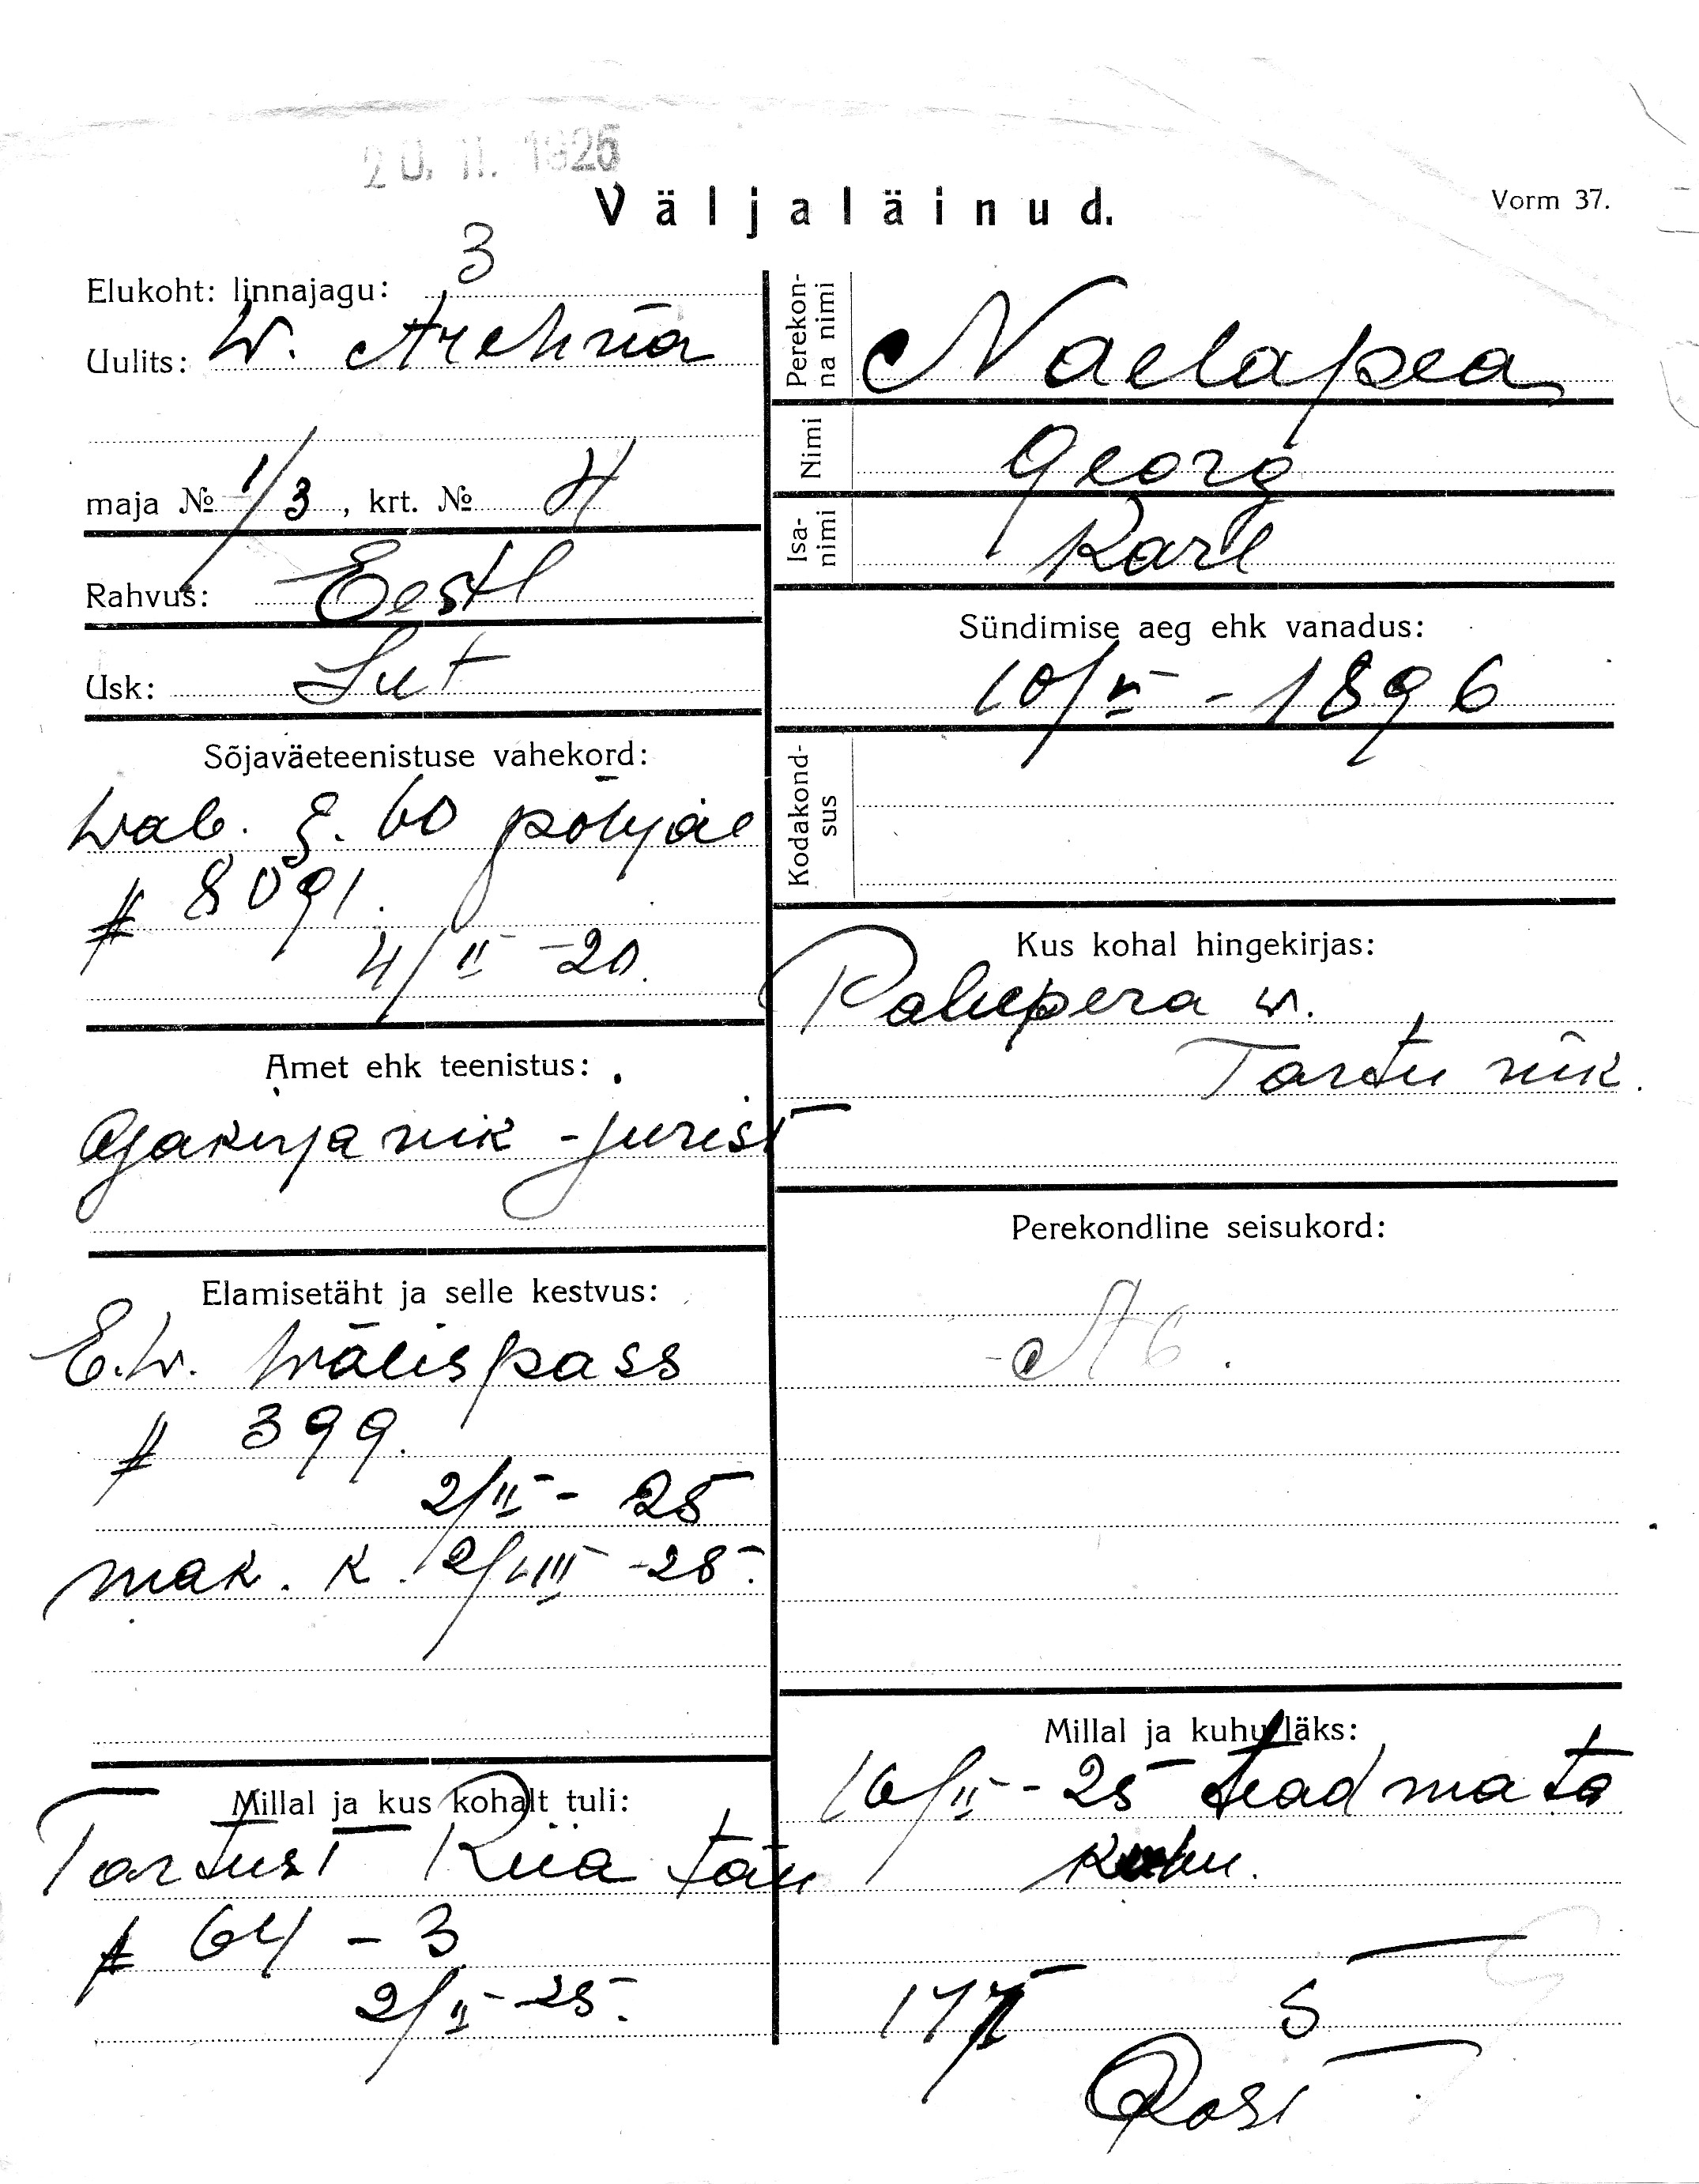 20. II. 1925
Väljaläinud.
Vorm 37.
Elukoht: linnajagu: 3
Uulits: W.
maja № 1/3, krt. № 4
Rahvus: Eesti
Usk: Lut
Sõjaväeteenistuse vahekord:
Wab. §. 60 põhjal
# 8091.
4/II - 20.
Amet ehk teenistus:
Ajakirjanik - jurist
Elamisetäht ja selle kestvus:
E.W. Wälispass
# 399.
2/II - 25
mak. k. 2/VIII - 25.
Millal ja kus kohalt tuli:
Tartust Riia tän
# 64 - 3
2/II - 25.
Perekonna nimi
Naelapea
Nimi
Georg
Isanimi
Karl
Sündimise aeg ehk vanadus:
10/VI - 1896
Kodakondsus
Kus kohal hingekirjas:
Palupera w.
Tartu
Perekondline seisukord:
Millal ja kuhu läks:
16/II - 25 teadmata
kuhu.
17/II 5